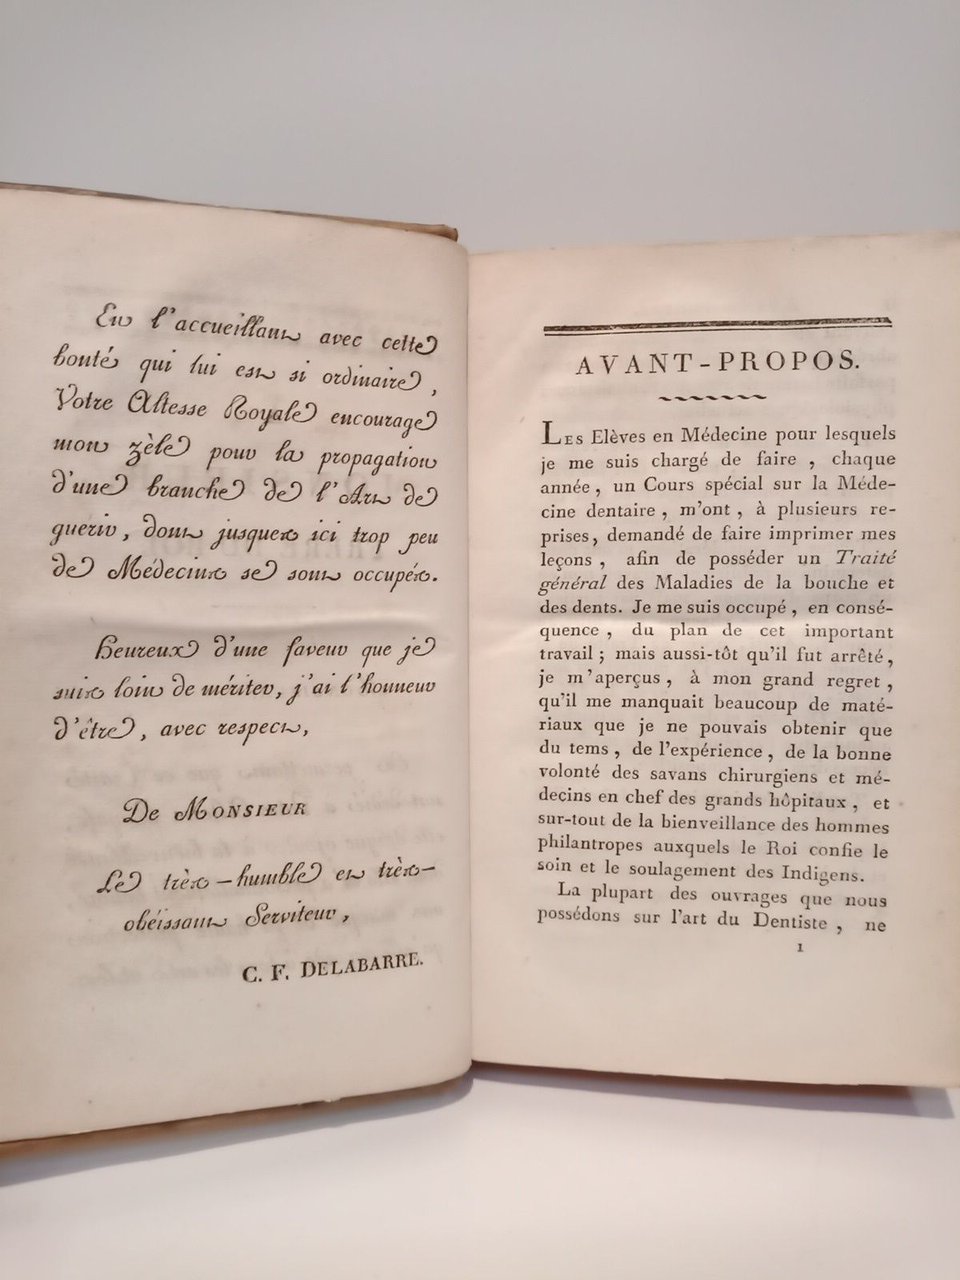 En l'accueillant avec cette
bonté qui lui est si ordinaire,
Votre Altesse Royale encourage
mon zèle pour la propagation
d'une branche de l'Art de
guérir, dont jusques ici trop peu
de Médecins se sont occupés.
Heureux d'une faveur que je
suis loin de mériter, j'ai l'honneur
d'être, avec respect,
De MONSIEUR
Le très-humble et très-
obéissant Serviteur,
C. F. DELABARRE.
AVANT-PROPOS.
LES Elèves en Médecine pour lesquels
je me suis chargé de faire, chaque
année, un Cours spécial sur la Méde-
cine dentaire, m'ont, à plusieurs re-
prises, demandé de faire imprimer mes
leçons, afin de posséder un Traité
général des Maladies de la bouche et
des dents. Je me suis occupé, en consé-
quence, du plan de cet important
travail; mais aussi-tôt qu'il fut arrêté,
je m'aperçus, à mon grand regret,
qu'il me manquait beaucoup de maté-
riaux que je ne pouvais obtenir que
du tems, de l'expérience, de la bonne
volonté des savans chirurgiens et mé-
decins en chef des grands hôpitaux, et
sur-tout de la bienveillance des hommes
philantropes auxquels le Roi confie le
soin et le soulagement des Indigens.
La plupart des ouvrages que nous
possédons sur l'art du Dentiste, ne
1